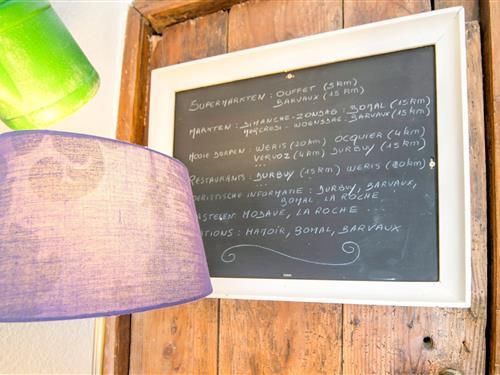 SUPERMARKTEN : OUFFET (5km)
BARVAUX (15 km)
MARKTEN : DIMANCHE-ZONDAG : BOMAL (15 km)
MERCREDI - WOENSDAG : BARVAUX (15 km)
MOOIE DORPEN : WERIS (20km) OCQUIER (4km)
VERVOZ (4 km) DURBUY (15km)
...
RESTAURANTS : DURBUY (15 km) WERIS (20km)
...
RISTISCHE INFORMATIE : DURBUY, BARVAUX,
BOMAL, LA ROCHE
ASTELEN : MODAVE, LA ROCHE ...
ATIONS : HAMOIR, BOMAL, BARVAUX